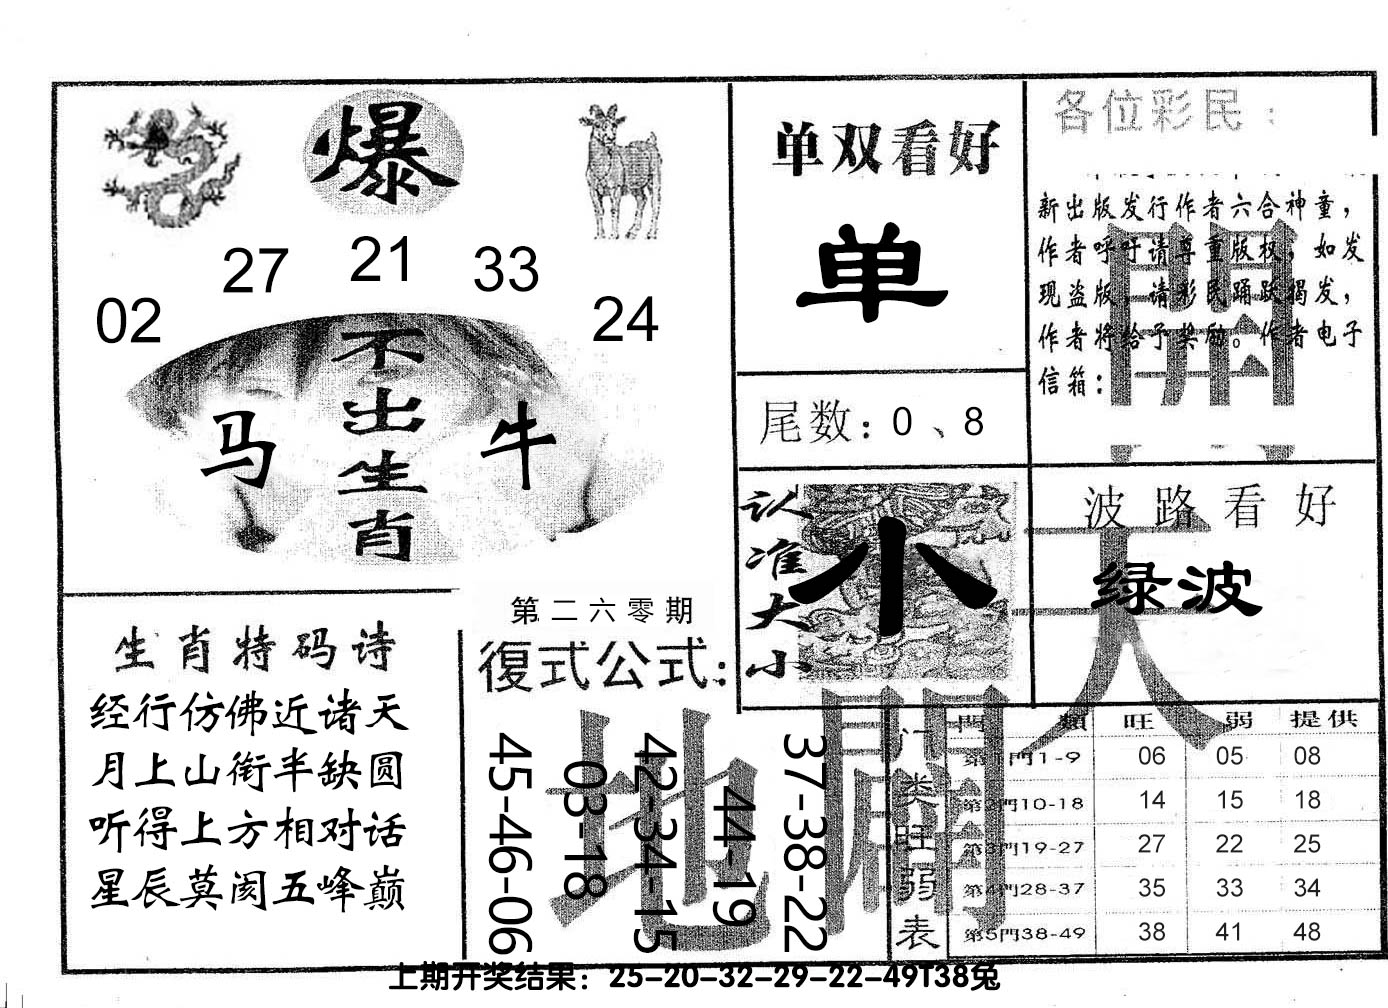 爆
27 21 33
02 24
不出生肖
马 牛
单双看好
单
尾数：0、8
各位彩民：
新出版发行作者六合神童，
作者呼吁请尊重版权，如发
现盗版，请彩民踊跃揭发，
作者将给予奖励。作者电子
信箱：
開
认准大小
小
波路看好
绿波
天
生肖特码诗
经行仿佛近诸天
月上山衔半缺圆
听得上方相对话
星辰莫阂五峰巅
第二六零期
復式公式：
45-46-06
03-18
42-34-15
44-19
37-38-22
地
闢
门类旺弱表
門 類 旺 弱 提供
第1門1-9 06 05 08
第2門10-18 14 15 18
第3門19-27 27 22 25
第4門28-37 35 33 34
第5門38-49 38 41 48
上期开奖结果：25-20-32-29-22-49T38兔